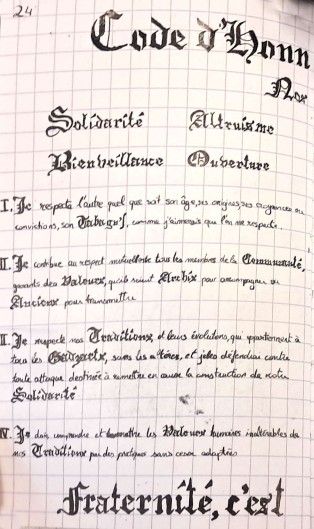 24
Code d'Honn
Nos
Solidarité Altruisme
Bienveillance Ouverture
I. Je respecte l'autre quel que soit son âge, ses origines, ses croyances ou
convictions, son Tabagn's, comme j'aimerais que l'on me respecte.
II. Je contribue au respect mutuel entre tous les membres de la Communauté,
garants des Valeurs, qu'ils soient Archix pour accompagner ou
Anciens pour transmettre
II. Je respecte nos Traditions, et leurs évolutions, qui appartiennent à
tous les Gadzarts, sans les altérer, et je les défendrai contre
toute attaque destinée à remettre en cause la construction de notre
Solidarité
IV. Je dois comprendre et transmettre les Valeurs humaines inaltérables de
nos Traditions par des pratiques sans cesse adaptées
Fraternité, c'est